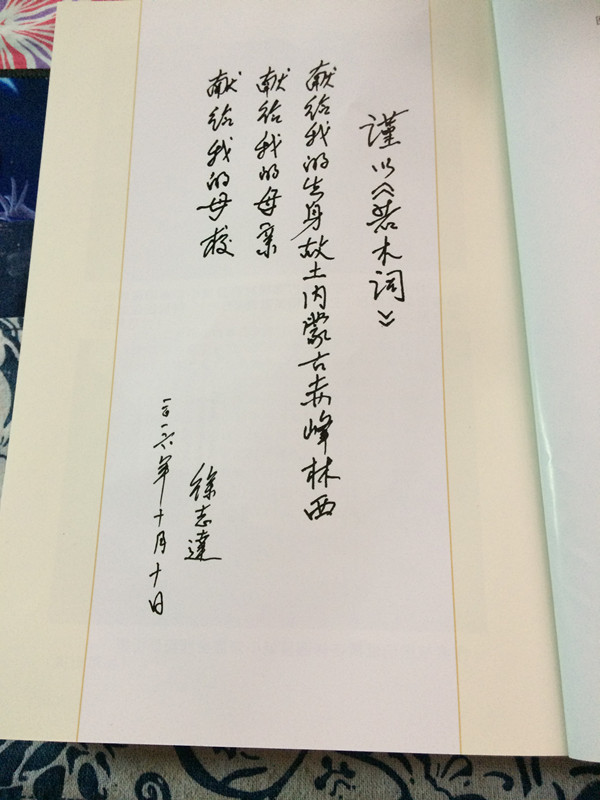 謹以《若木词》
献给我的生身故土内蒙古赤峰林西
献给我的母亲
献给我的母校
徐志達
二〇一六年十月十日